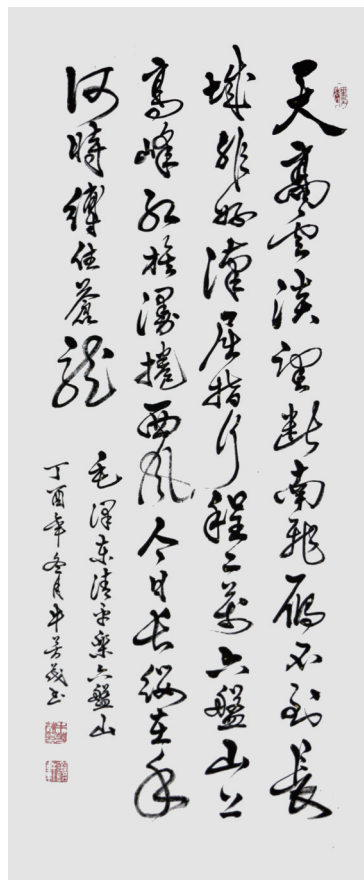 天高雲淡望斷南飛雁不到長
城非好漢屈指行程二萬六盤山上
高峰紅旗漫捲西風今日長纓在手
何時縛住蒼龍
毛澤東清平樂六盤山
丁酉年冬月牛芳茂書